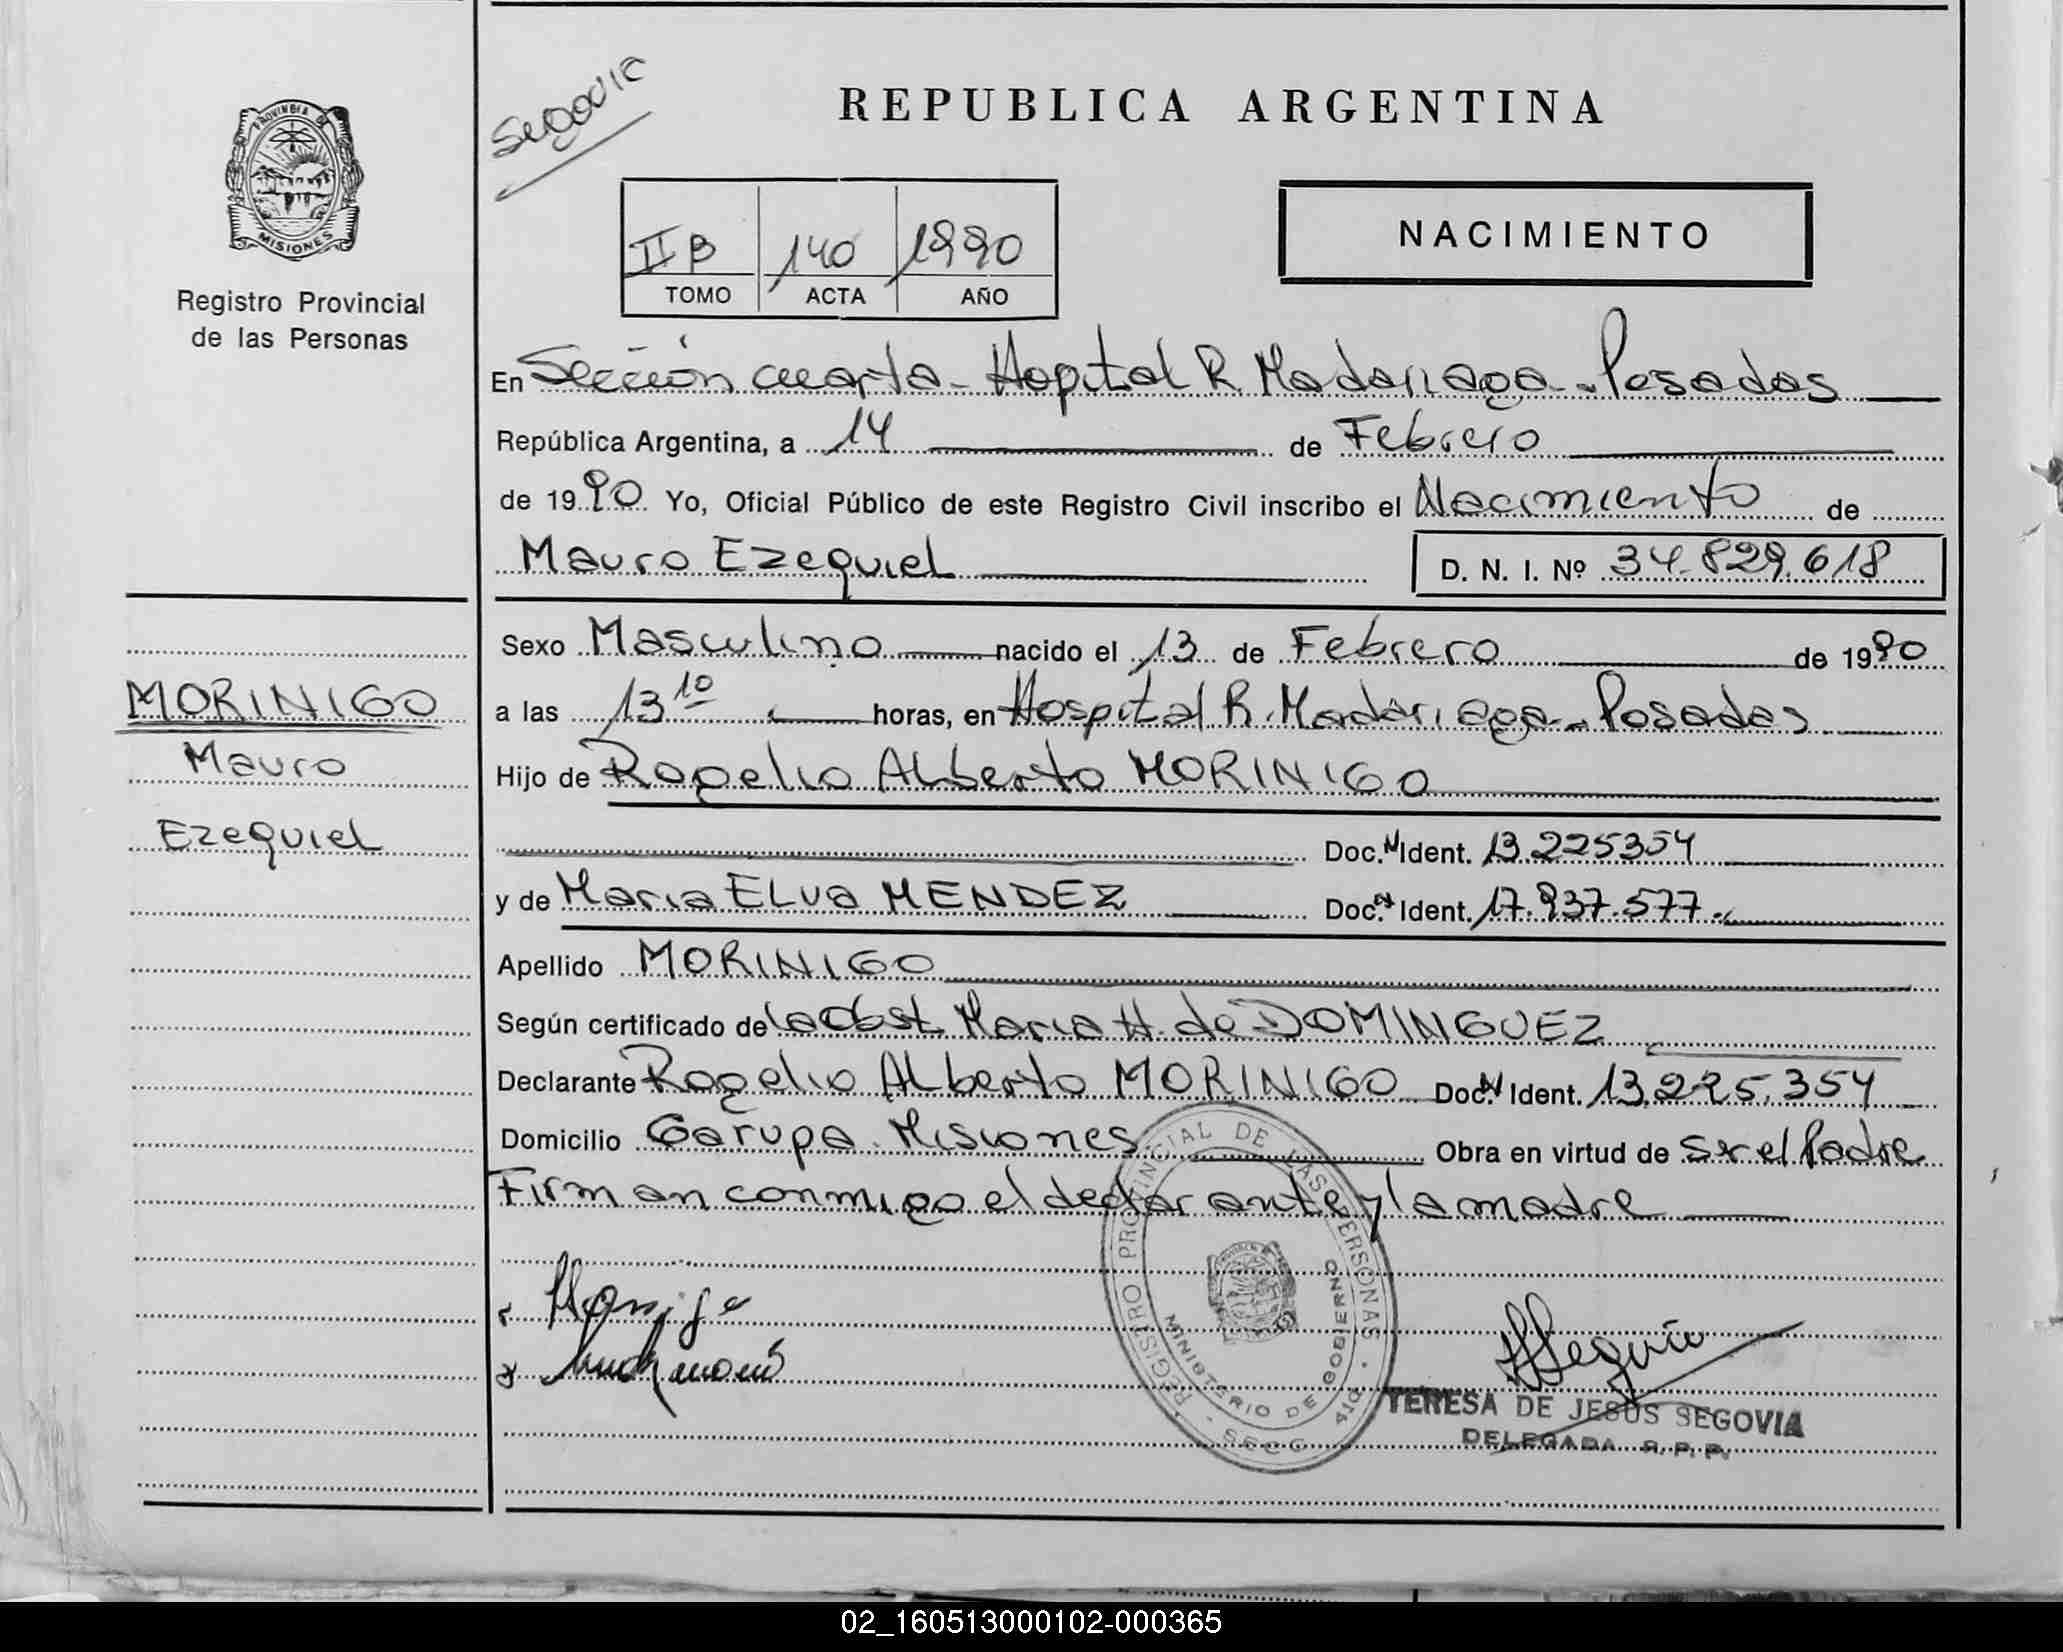 Segovia
REPUBLICA ARGENTINA
PROVINCIA DE
MISIONES
Registro Provincial
de las Personas
II B 140 1990
TOMO ACTA AÑO
NACIMIENTO
En Sección cuarta - Hopital R. Madariaga - Posadas
República Argentina, a 14 de Febrero
de 1990 Yo, Oficial Público de este Registro Civil inscribo el Nacimiento de
Mauro Ezequiel D. N. I. Nº 34.829.618
Sexo Masculino nacido el 13 de Febrero de 1990
a las 13 10 horas, en Hospital R. Madariaga - Posadas
Hijo de Rogelio Alberto MORINIGO
Doc. N Ident. 13.225354
y de Maria ELva MENDEZ Doc. N Ident. 17.937.577.
Apellido MORINIGO
Según certificado de la Obst. Maria H. de DOMINGUEZ
Declarante Rogelio Alberto MORINIGO Doc. N Ident. 13.225.354
Domicilio Garupa - Misiones Obra en virtud de Ser el Padre
Firman conmigo el declarante y la madre
MORINIGO
Mauro
Ezequiel
REGISTRO PROVINCIAL DE LAS PERSONAS
MINISTERIO DE GOBIERNO
SECC 4ta
TERESA DE JESUS SEGOVIA
DELEGADA R. P. P.
02_160513000102-000365